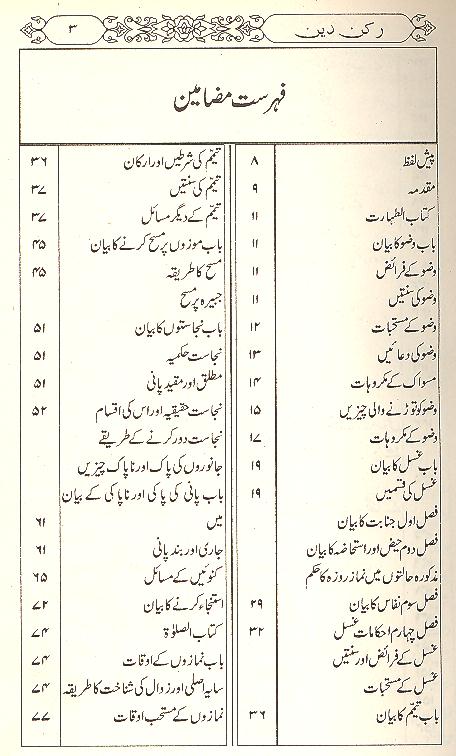 رکن دین
۳
فہرست مضامین
پیش لفظ ۸
مقدمہ ۹
کتاب الطہارت ۱۱
باب وضو کا بیان ۱۱
وضو کے فرائض ۱۱
وضو کی سنتیں ۱۱
وضو کے مستحبات ۱۲
وضو کی دعائیں ۱۳
مسواک کے مکروہات ۱۴
وضو کو توڑنے والی چیزیں ۱۵
وضو کے مکروہات ۱۷
باب غسل کا بیان ۱۹
غسل کی قسمیں ۱۹
فصل اول جنابت کا بیان
فصل دوم حیض اور استحاضہ کا بیان
مذکورہ حالتوں میں نماز روزہ کا حکم
فصل سوم نفاس کا بیان ۲۹
فصل چہارم احکامات غسل ۳۲
غسل کے فرائض اور سنتیں
غسل کے مستحبات
باب تیمّم کا بیان ۳۶
تیمّم کی شرطیں اور ارکان ۳۶
تیمّم کی سنتیں ۳۷
تیمّم کے دیگر مسائل ۳۷
باب موزوں پر مسح کرنے کا بیان ۴۵
مسح کا طریقہ ۴۵
جبیرہ پر مسح
باب نجاستوں کا بیان ۵۱
نجاست حکمیہ ۵۱
مطلق اور مقید پانی ۵۱
نجاست حقیقیہ اور اس کی اقسام ۵۲
نجاست دور کرنے کے طریقے
جانوروں کی پاک اور ناپاک چیزیں
باب پانی کی پاکی اور ناپاکی کے بیان
میں ۶۱
جاری اور بند پانی ۶۱
کنوئیں کے مسائل ۶۵
استنجاء کرنے کا بیان ۷۲
کتاب الصلوٰۃ ۷۴
باب نمازوں کے اوقات ۷۴
سایہ اصلی اور زوال کی شناخت کا طریقہ ۷۴
نمازوں کے مستحب اوقات ۷۷